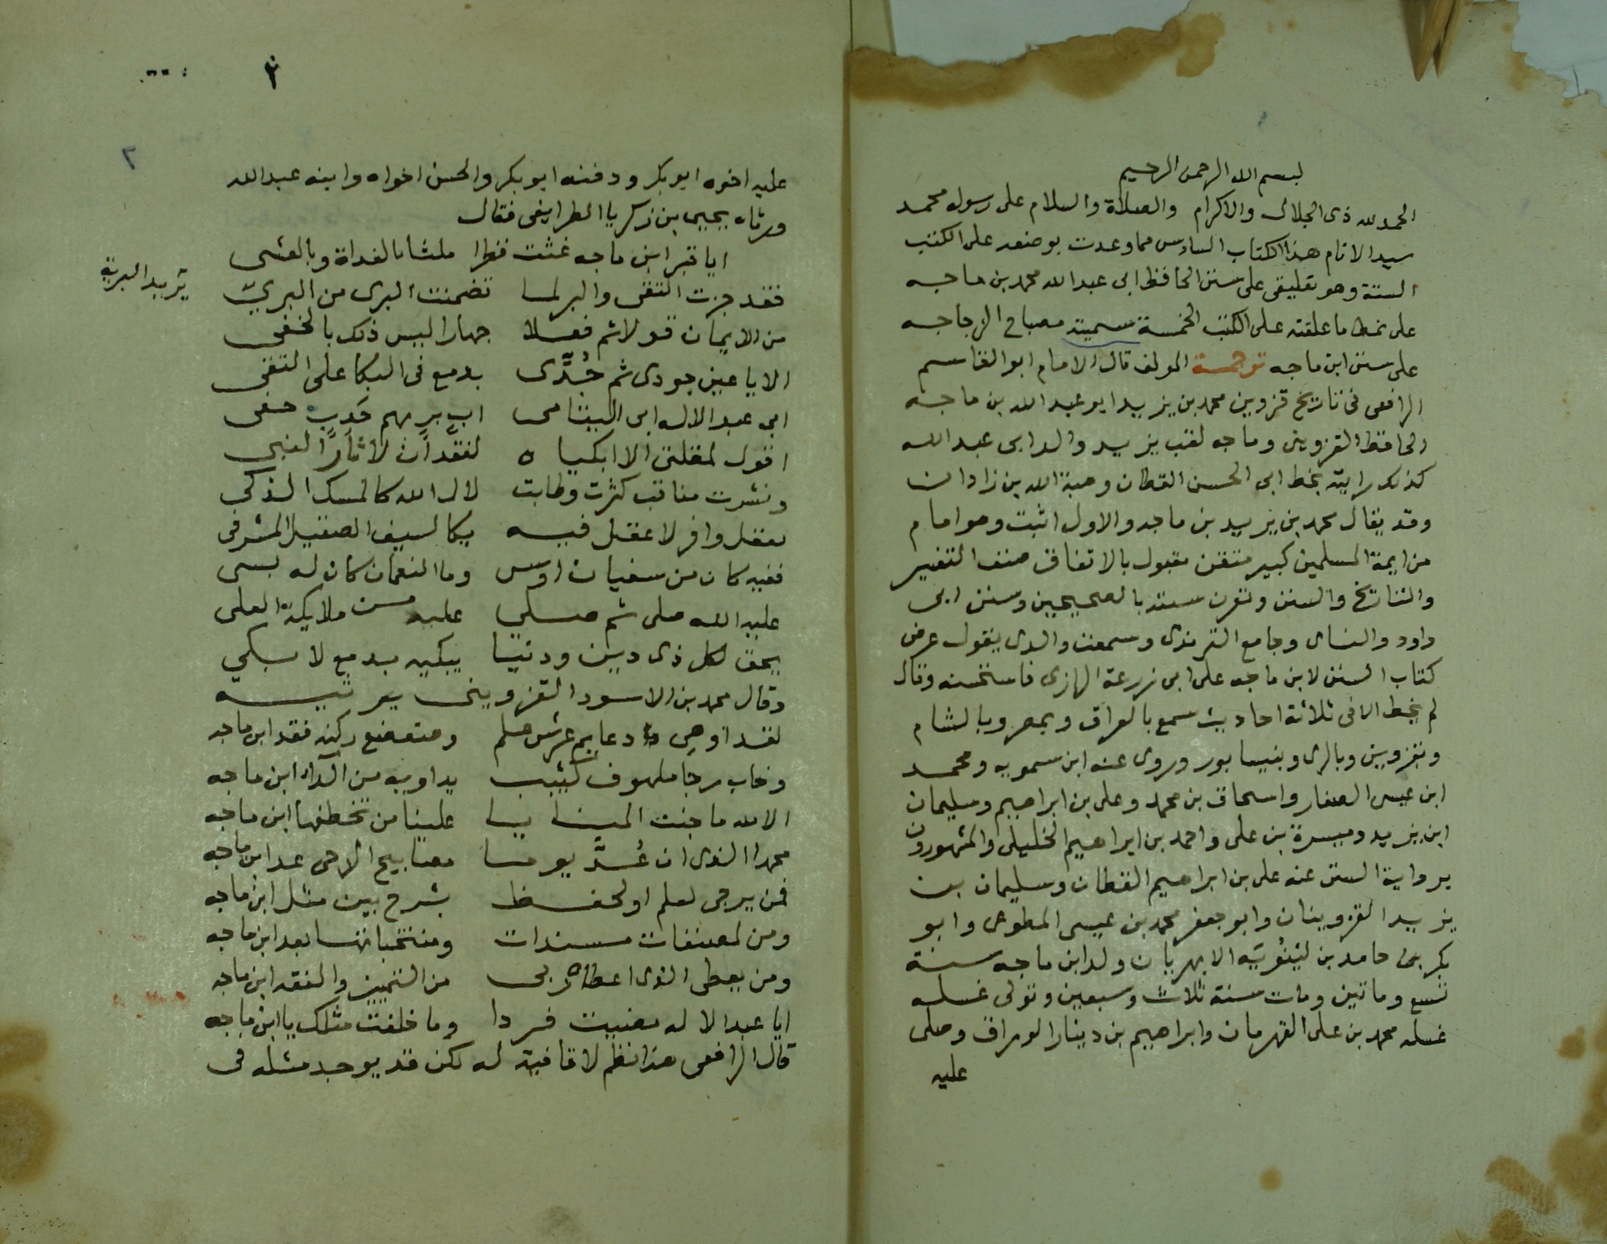 بسم الله الرحمن الرحيم
الحمد لله ذى الجلال والاكرام والصلاة والسلام على رسوله محمد
سيد الانام هذا الكتاب السادس مما وعدت بوضعه على الكتب
الستة وهو تعليق على سنن الحافظ ابى عبد الله محمد بن ماجه
على نمط ما علقته على الكتب الخمسة سميته مصباح الزجاجه
على سنن ابن ماجه ترجمة المولف قال الامام ابو القاسم
الرافعى فى تاريخ قزوين محمد بن يزيد ابو عبد الله بن ماجه
الحافظ القزوينى وماجه لقب يزيد والد ابى عبد الله
كذلك رايته بخط ابى الحسن القطان وهبة الله بن زاذان
وقد يقال محمد بن يزيد بن ماجه والاول اثبت وهو امام
من ايمة المسلمين كبير متقن مقبول بالاتفاق صنف التفسير
والتاريخ والسنن وتقرن سننه بالصحيحين وسنن ابى
داود والنساى وجامع الترمذى وسمعت والدى يقول عرض
كتاب السنن لابن ماجه على ابى زرعة الرازى فاستحسنه وقال
لم يخط الا فى ثلاثة احاديث سمع بالعراق وبمصر وبالشام
وبقزوين وبالرى وبنيسابور وروى عنه ابن سمويه ومحمد
ابن عيسى الصفار واسحاق بن محمد وعلى بن ابراهيم وسليمان
ابن يزيد وميسرة بن على واحمد بن ابراهيم الخليلى والمشهورون
برواية السنن عنه على بن ابراهيم القطان وسليمان بن
يزيد القزوينان وابو جعفر محمد بن عيسى المطوعى وابو
بكر حامد بن ليثويه الابهريان ولد ابن ماجه سنة
تسع وماتين ومات سنة ثلاث وسبعين وتولى غسله
غسله محمد بن على القهرمان وابراهيم بن دينار الوراق وصلى
عليه
٢
٢
عليه اخوه ابو بكر ودفنه ابو بكر والحسن اخواه وابنه عبد الله
ورثاه يحيى بن زكريا الطرايفى فقال
ايا قبر ابن ماجه غثت قطرا ملثا بالغداة وبالعشى
فقد حزت التقى والبر لما تضمنت البرى من البرىّ
يريد البرية
من الايمان قولا ثم فعلا جهارا ليس ذلك بالخفى
الا يا عين جودى ثم جُدّى بدمع فى البكا على التقى
ابى عبد الاله ابى اليتامى اب بر بهم حَدِبٍ حفى
اقول لمقلتى الا ابكياه لفقدان لاثار النبى
ونشرت مناقب كثرت وطابت لال الله كالمسك الذكى
بعقل وافر لا عقل فيه يكالسيف الصقيل المشرفى
فقيه كان من سفيان اوسى وما النعمان كان له بسى
عليه الله صلى ثم صلى عليه ملايكة العلى
يحق لكل ذى دين ودنيا يبكيه بدمع لا بكى
وقال محمد بن الاسود القزوينى يرثيه
لقد اوهى دعايم عرش علم وضعضع ركنه فقد ابن ماجه
وخاب رجا ملهوف كئيب يداويه من الداء ابن ماجه
الا لله ما جنت المنايا علينا من تخطفها ابن ماجه
محمدا الذى ان عُدَّ يوما مصابيح الدجى عد ابن ماجه
فمن يرجى لعلم او لحفظ بشرح بين مثل ابن ماجه
ومن لمصنفات مسندات ومنتخباتها بعد ابن ماجه
ومن يعطى الذى اعطاه ربى من التمييز والفقه ابن ماجه
ايا عبد الاله مضيت فردا وما خلفت مثلك يا ابن ماجه
قال الرافعى هذا نظم لا قافية له لكن قد يوجد مثله فى